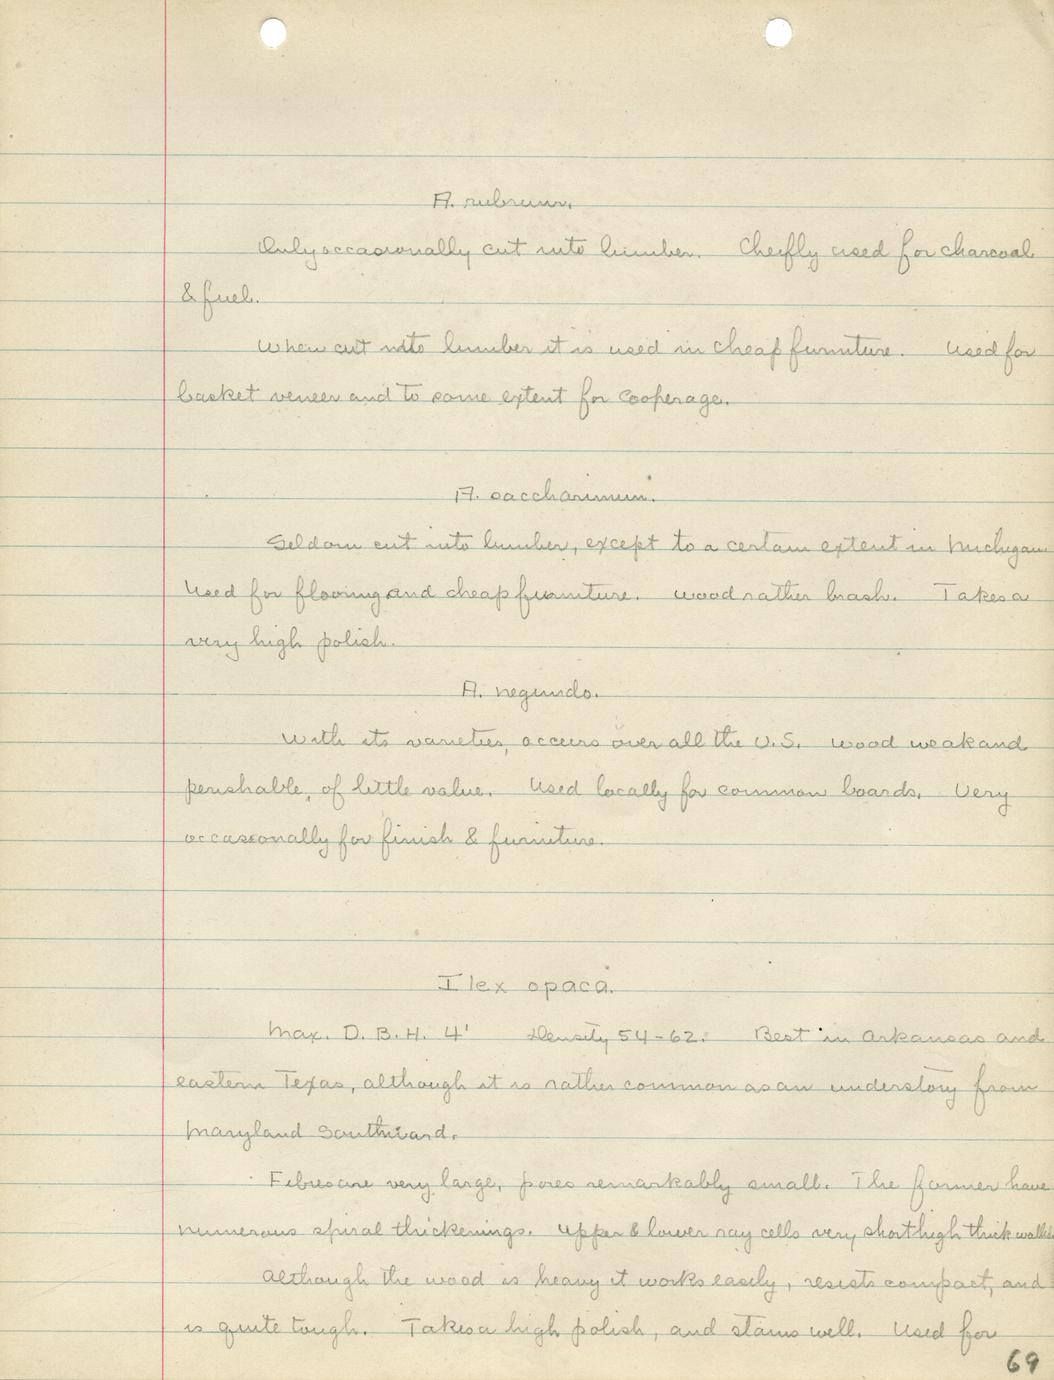 A. rubrum.
Only occasionally cut into lumber. Cheifly used for charcoal
& fuel.
When cut into lumber it is used in cheap furniture. Used for
basket veneer and to some extent for cooperage.
A. saccharinum.
Seldom cut into lumber, except to a certain extent in Michigan
Used for flooring and cheap furniture. Wood rather brash. Takes a
very high polish.
A. negundo.
With its varieties, occurs over all the U.S. Wood weak and
perishable, of little value. Used locally for common boards. Very
occasionally for finish & furniture.
Ilex opaca.
Max. D.B.H. 4' Density 54-62. Best in Arkansas and
eastern Texas, although it is rather common as an understory from
Maryland Southward.
Fibres are very large, pores remarkably small. The former have
numerous spiral thickenings. Upper & lower ray cells very short high thick walled
Although the wood is heavy it works easily, resists compact, and
is quite tough. Takes a high polish, and stains well. Used for
69